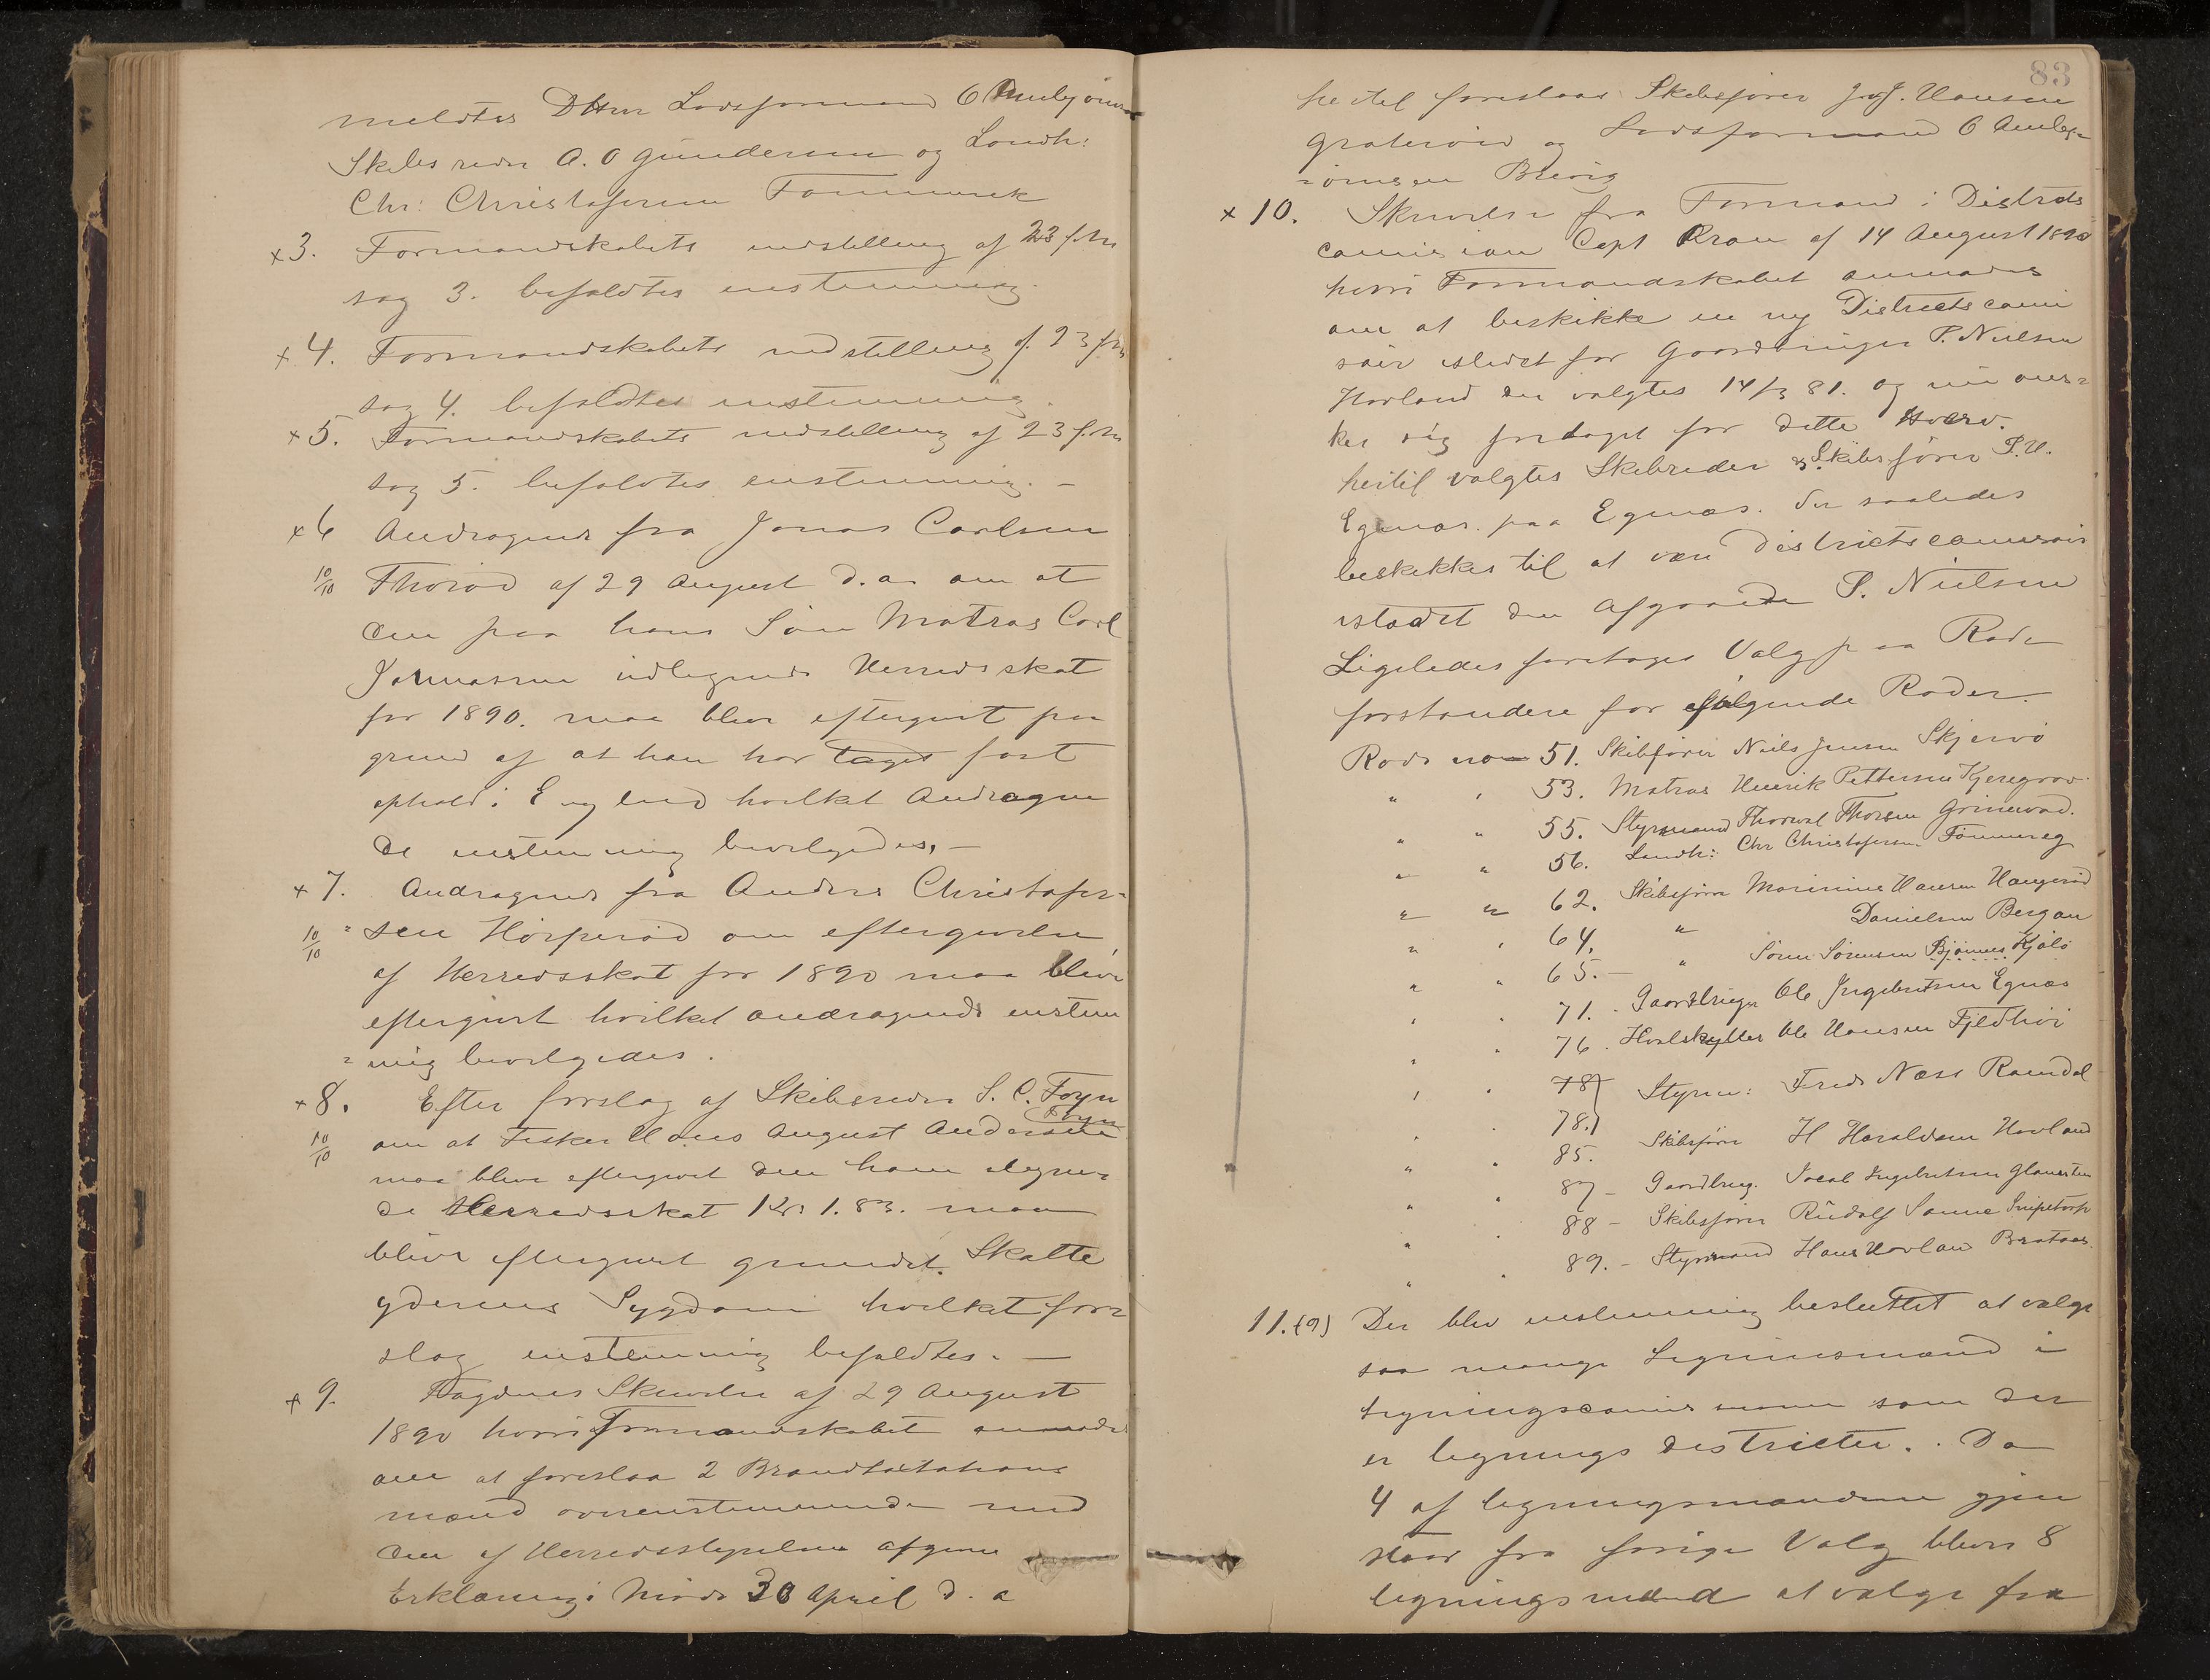 meldtes DHrr Lodsformand O Ambjörns
Skibsreder A. O Gundersen og Landh:
Chr: Christofersen Tömmerek
x3. Formandskabets indstilling af 23 f. M
sag 3. befaldtes enstemmig.
x4. Formandskabets indstilling af 23 f. M
sag 4. befaldtes enstemmig.
x5. Formandskabets indstilling af 23 f. M
sag 5. befaldtes enstemmig. –
x6 Andragende fra Jonas Carlsen
10/10 Thoröd af 29 August d. a. om at
den paa hans Sön Matros Carl
Jonnassen udlignede Herredsskat
for 1890. maa blive eftergivet paa
grund af at han har taget fast
ophold i England hvilket Andragen
de enstemmig bevilgedes, –
x7. Andragende fra Anders Christofer=
10/10 =sen Hörperöd om eftergivelse
af Herredsskat for 1890 maa blive
eftergivet hvilket andragende enstem
=mig bevilgedes.
x8. Efter forslag af Skibsreder S. C. Foyn
Foyn
10/10 om at Fisker Hans August Andersen
maa blive eftergivet den ham ilignе=
de Herredsskat Kr 1.83. maa
blive eftergivet grundet Skatte
yderens Sygdom hvilket for=
slag enstemmig befaldtes. –
x9. Fogdens Skrivelse af 29 August
1890 hvori Formandskabet anmodes
om at foreslaa 2 Brandtaxtations
mænd overenstemmende med
den af Herredsstyrelsen afgivne
Erklæring i Möde 30 April d. a
83
hertil foreslaaes Skibsförer J. Hansen
Grateröd og Lodsformand O Ambj=
=örnsen Brevig
x10. Skrivelse fra Formand i Districts
comisionen Capt Kran af 14 August 1890
hvori Formandskabet anmodes
om at beskikke en ny Districtscomi
sær istedet for Gaardbruger P. Nielsen
Havland der valgtes 14/3 81. og nu öns=
ker sig fredaget for dette Hverv.
hertil valgtes Skibreder & Skibsförer P. H.
Egenæs. paa Egenæs. der saaledes
beskikkes til at være Districtscomisær
istedet den afgaaede P. Nielsen
Ligeledes foretoges Valg paa Rode
forstandere for följende Roder.
Rode no 51. Skibsförer Niels Jensen Skjervö
" " 53. Matros Henrik Pettersen Kjeregrav
" " 55. Styrmand Thorval Thorsen Grimeröd.
" " 56. Landh: Chr Christofersen Tömmereg
" " 62. Skibsförer Marinius Hansen Haugeröd
" " 64. " Danielsen Bergan
" " 65. – " Sören Sörensen Bjönnes Kjölö
" " 71. Gaardbruger Ole Ingebretsen Egnæs
" " 76. Hvalskytter Ole Hansen Fjeldhöi
" " 78}
" " 78.} Styrm: Fredr Næss Ramdal
" " 85. Skibsförer H Haraldsen Havland
" " 87 – Gaardbrug. Jocob Ingebretsen
" " 88 – Skibsförer Rudolf Sanne Snipetorp
" " 89. – Styrmand Hans Havlan Brataas.
11.(9) Der blev enstemmig besluttet at vælge
saa mange Ligningsmænd i
Ligningscomisionen som der
er lignings districter. Da
4 af ligningsmændene gjen
staar fra forige Valg blive 8
ligningsmænd at vælge fra